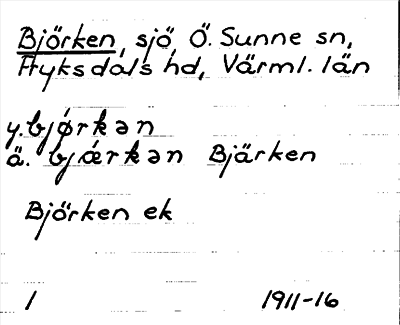 Björken, sjö, Ö. Sunne sn,
Fryksdals hd, Värml. län
y. bjǿrkən
ä. bjǽrkən Bjärken
Björken ek
1 1911-16